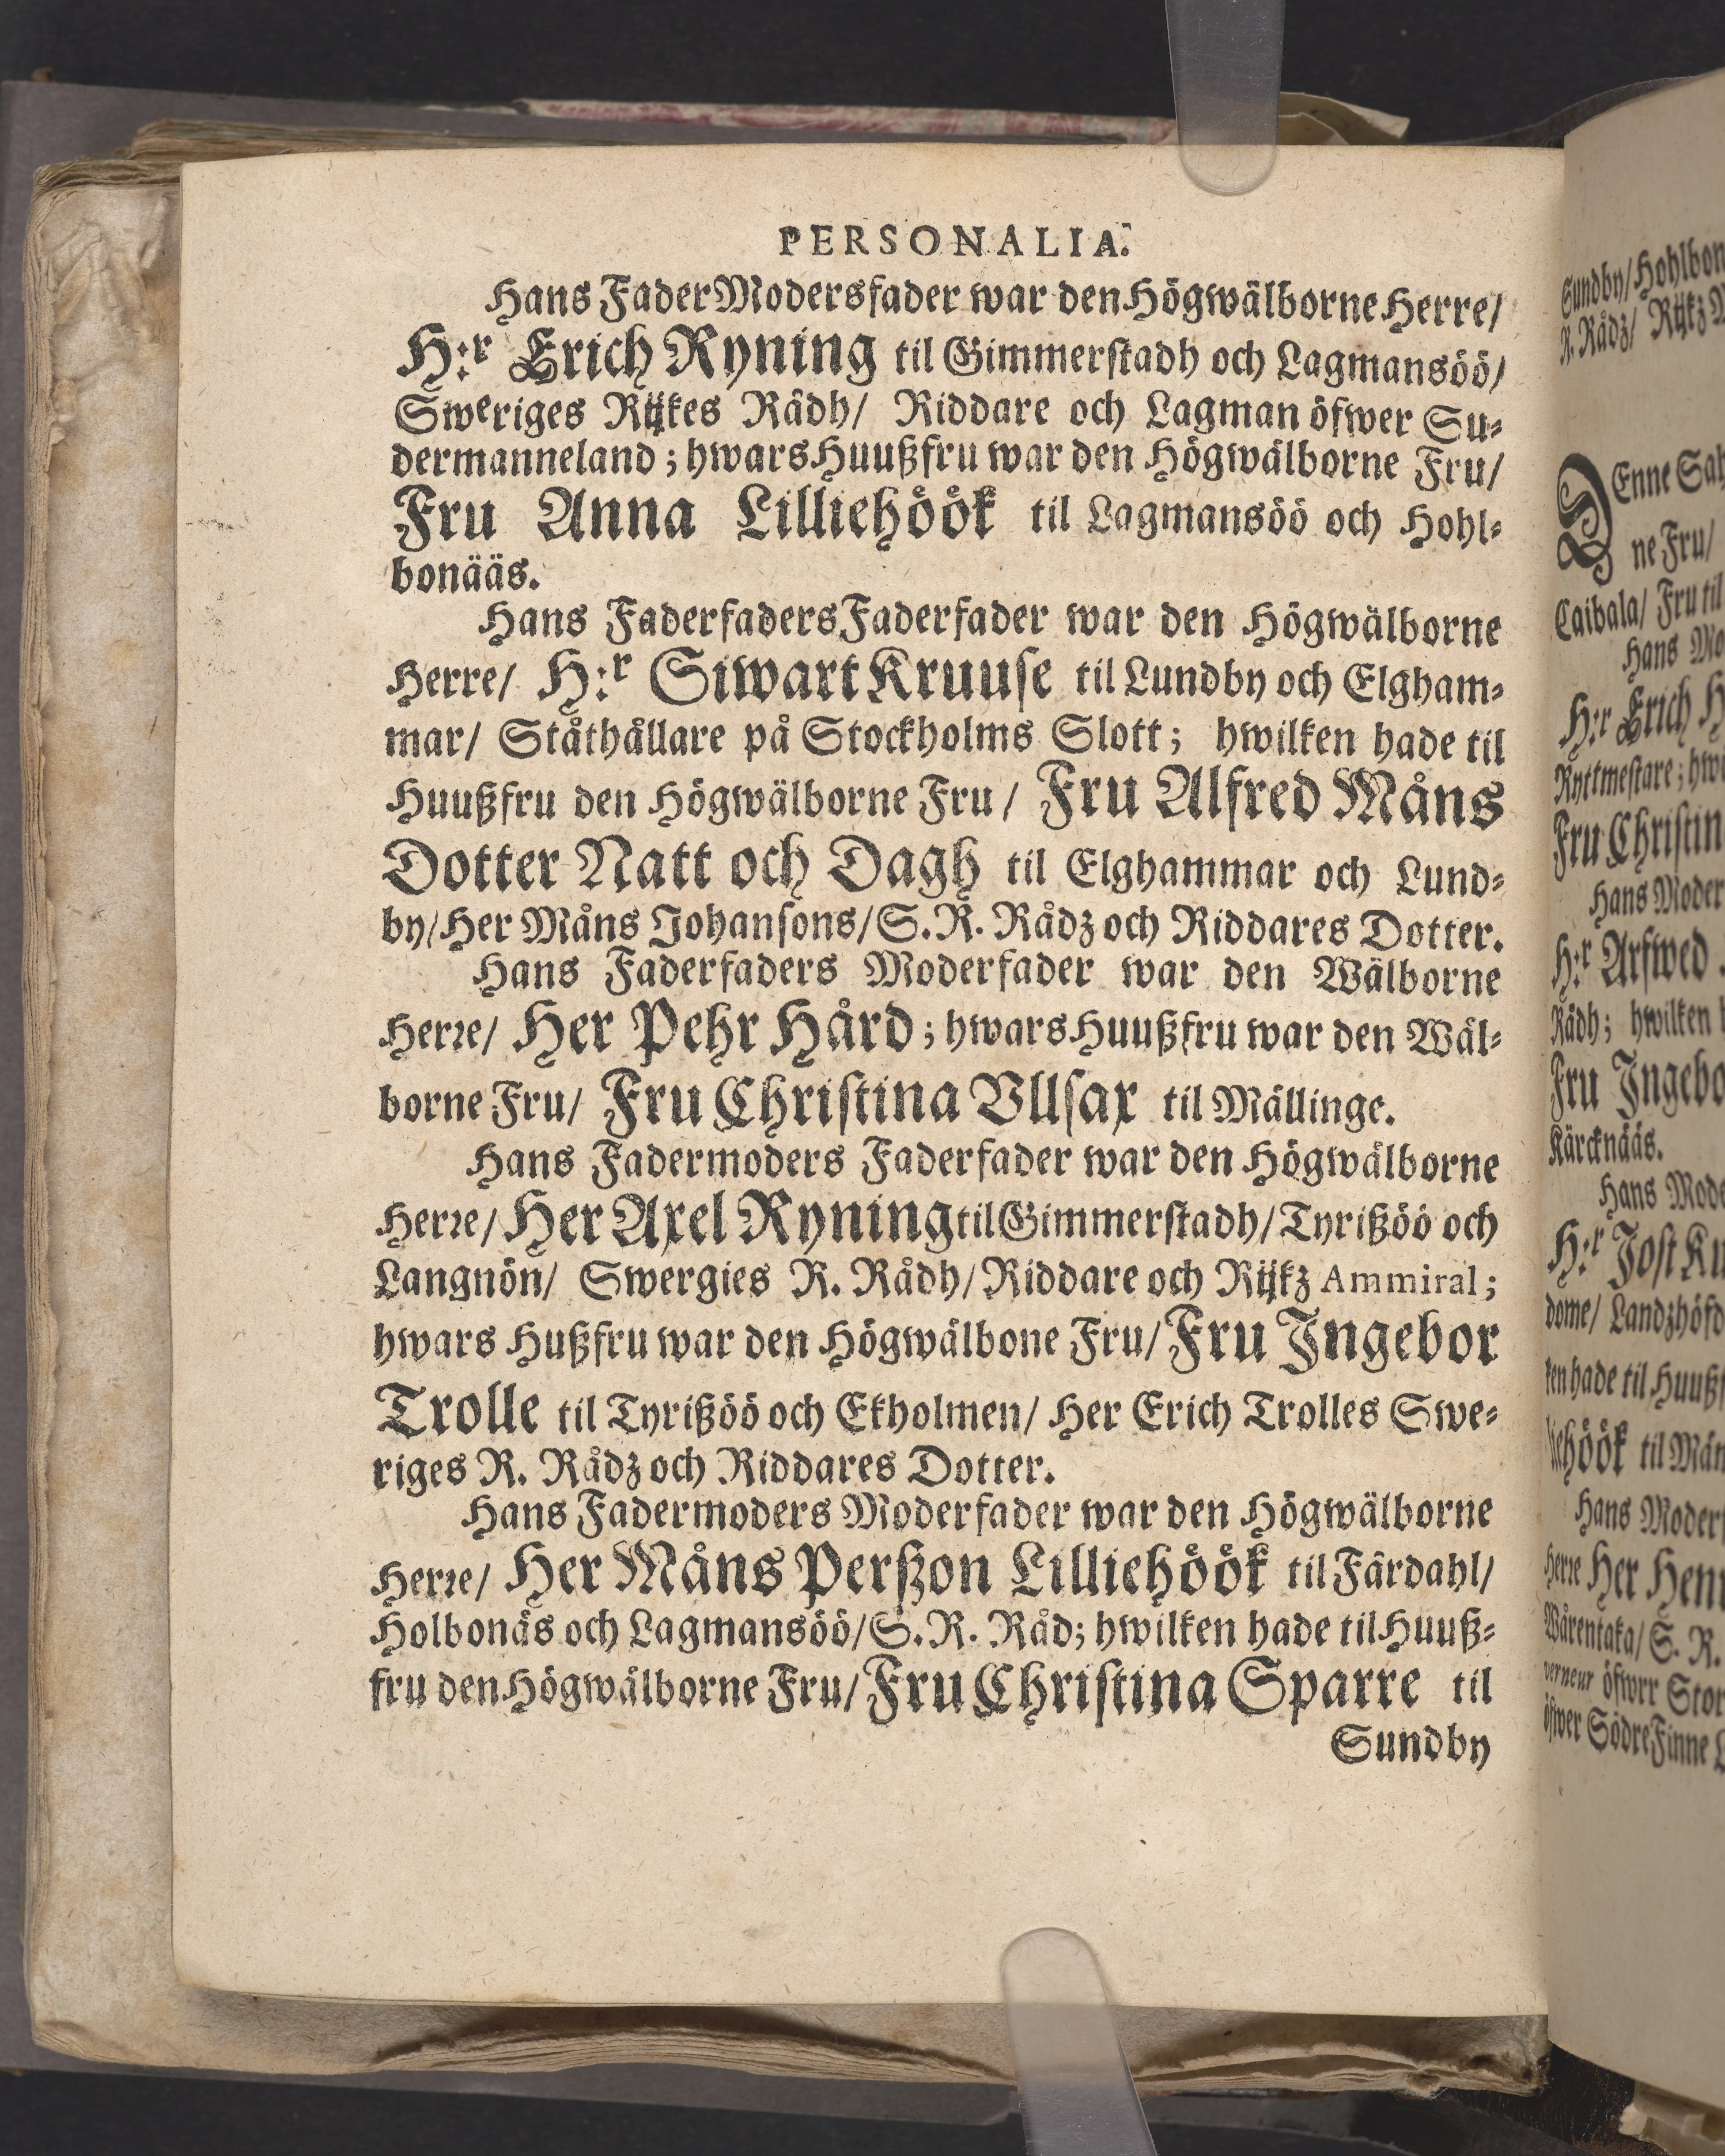 PERSONALIA.
Hans FaderModersfader war den Högwälborne Herre/
H:r Erich Ryning til Gimmerstadh och Lagmansöö/
Sweriges Rijkes Rådh/ Riddare och Lagman öfwer Su-
dermanneland; hwars Huußfru war den Högwälborne Fru/
Fru Anna Lilliehöök til Lagmansöö och Hohl-
bonääs.
Hans Faderfaders Faderfader war den Högwälborne
Herre/ H:r Siwart Kruuse til Lundby och Elgham-
mar/ Ståthållare på Stockholms Slott; hwilken hade til
Huußfru den Högwälborne Fru/ Fru Alfred Måns
Dotter Natt och Dagh til Elghammar och Lund-
by/ Her Måns Johansons/ S. R. Rådz och Riddares Dotter.
Hans Faderfaders Moderfader war den Wälborne
Herre/ Her Pehr Hård; hwars Huußfru war den Wäl-
borne Fru/ Fru Christina Vllsax til Mällinge.
Hans Fadermoders Faderfader war den Högwälborne
Herre/ Her Axel Ryning til Gimmerstadh/ Tyrißöö och
Langnön/ Swergies R. Rådh/ Riddare och Rijkz Ammiral;
hwars Hußfru war den Högwälbone Fru/ Fru Ingebor
Trolle til Tyrißöö och Ekholmen/ Her Erich Trolles Swe-
riges R. Rådz och Riddares Dotter.
Hans Fadermoders Moderfader war den Högwälborne
Herre/ Her Måns Perßon Lilliehöök til Färdahl/
Holbonäs och Lagmansöö/ S. R. Råd; hwilken hade til Huuß-
fru den Högwälborne Fru/ Fru Christina Sparre til
Sundby
Sundby/
R. Rådz/
DEnne
ne Fru/
Caibala/ Fru til
Hans
H:r Erich
Ryttmestare;
Fru
Hans Moder
H:r Arfwed
Rådh; hwilken
Fru
Kärcknääs.
Hans
H:r Jost
dome/
ken hade til
höök til
Hans
Herre Her
Wårentaka/ S. R.
öfwer Södre Finne